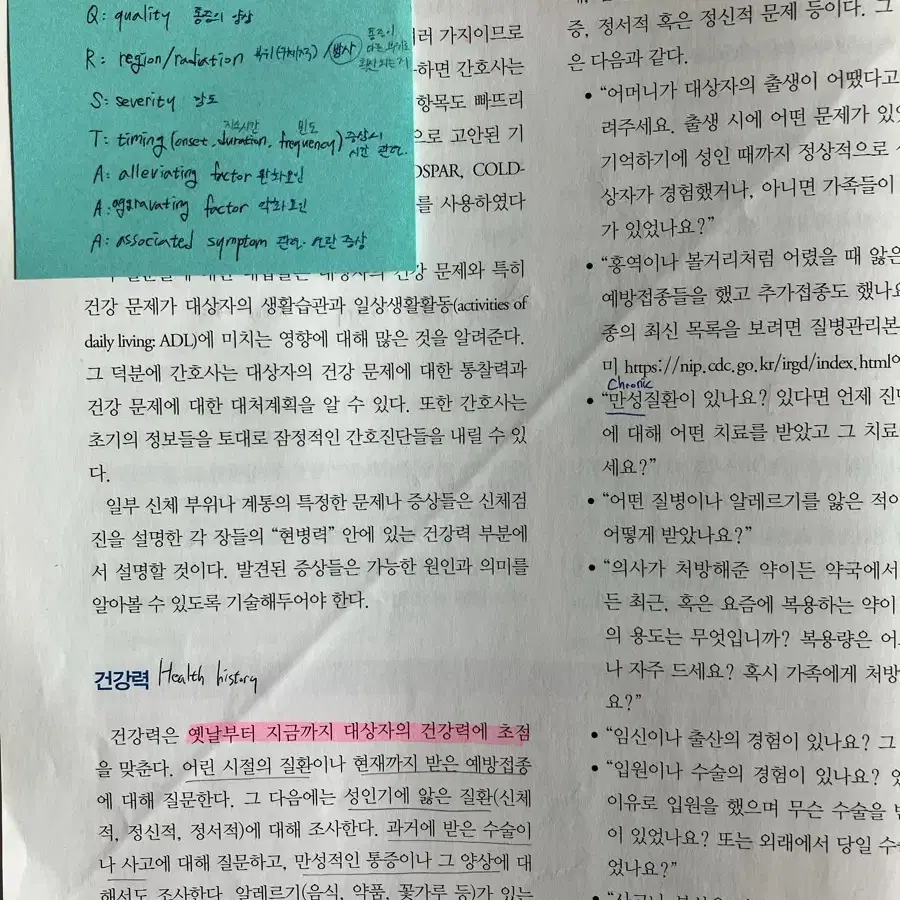 Q: quality 통증의 양상
R: region/radiation 부위(구체적)/방사 통증이 다른 부위로
S: severity 강도
T: timing(onset, duration, frequency) 증상시 시간 관련
지속시간 빈도
A: alleviating factor 완화요인
A: aggravating factor 악화요인
A: associated symptom 관련 증상
러 가지이므로
하면 간호사는
항목도 빠뜨리
으로 고안된 기
OSPAR, COLD-
를 사용하였다
건강 문제와 특히
건강 문제가 대상자의 생활습관과 일상생활활동(activities of
daily living: ADL)에 미치는 영향에 대해 많은 것을 알려준다.
그 덕분에 간호사는 대상자의 건강 문제에 대한 통찰력과
건강 문제에 대한 대처계획을 알 수 있다. 또한 간호사는
초기의 정보들을 토대로 잠정적인 간호진단들을 내릴 수 있
다.
일부 신체 부위나 계통의 특정한 문제나 증상들은 신체검
진을 설명한 각 장들의 “현병력” 안에 있는 건강력 부분에
서 설명할 것이다. 발견된 증상들은 가능한 원인과 의미를
알아볼 수 있도록 기술해두어야 한다.
건강력 Health history
건강력은 옛날부터 지금까지 대상자의 건강력에 초점
을 맞춘다. 어린 시절의 질환이나 현재까지 받은 예방접종
에 대해 질문한다. 그 다음에는 성인기에 앓은 질환(신체
적, 정신적, 정서적)에 대해 조사한다. 과거에 받은 수술이
나 사고에 대해 질문하고, 만성적인 통증이나 그 양상에 대
해서도 조사한다. 알레르기(음식, 약품, 꽃가루 등)가 있는
증, 정서적 혹은 정신적 문제 등이다. 그
은 다음과 같다.
• “어머니가 대상자의 출생이 어땠다고
려주세요. 출생 시에 어떤 문제가 있었
기억하기에 성인 때까지 정상적으로
상자가 경험했거나, 아니면 가족들이
가 있었나요?”
• “홍역이나 볼거리처럼 어렸을 때 앓은
예방접종들을 했고 추가접종도 했나요
종의 최신 목록을 보려면 질병관리본
미 https://nip.cdc.go.kr/irgd/index.html에
Chronic
• “만성질환이 있나요? 있다면 언제 진단
에 대해 어떤 치료를 받았고 그 치료
세요?”
• “어떤 질병이나 알레르기를 앓은 적이
어떻게 받았나요?”
• “의사가 처방해준 약이든 약국에서
든 최근, 혹은 요즘에 복용하는 약이
의 용도는 무엇입니까? 복용량은 어
나 자주 드세요? 혹시 가족에게 처방
요?”
• “임신이나 출산의 경험이 있나요? 그
• “입원이나 수술의 경험이 있나요? 있
이유로 입원을 했으며 무슨 수술을 받
이 있었나요? 또는 외래에서 당일 수술
었나요?”